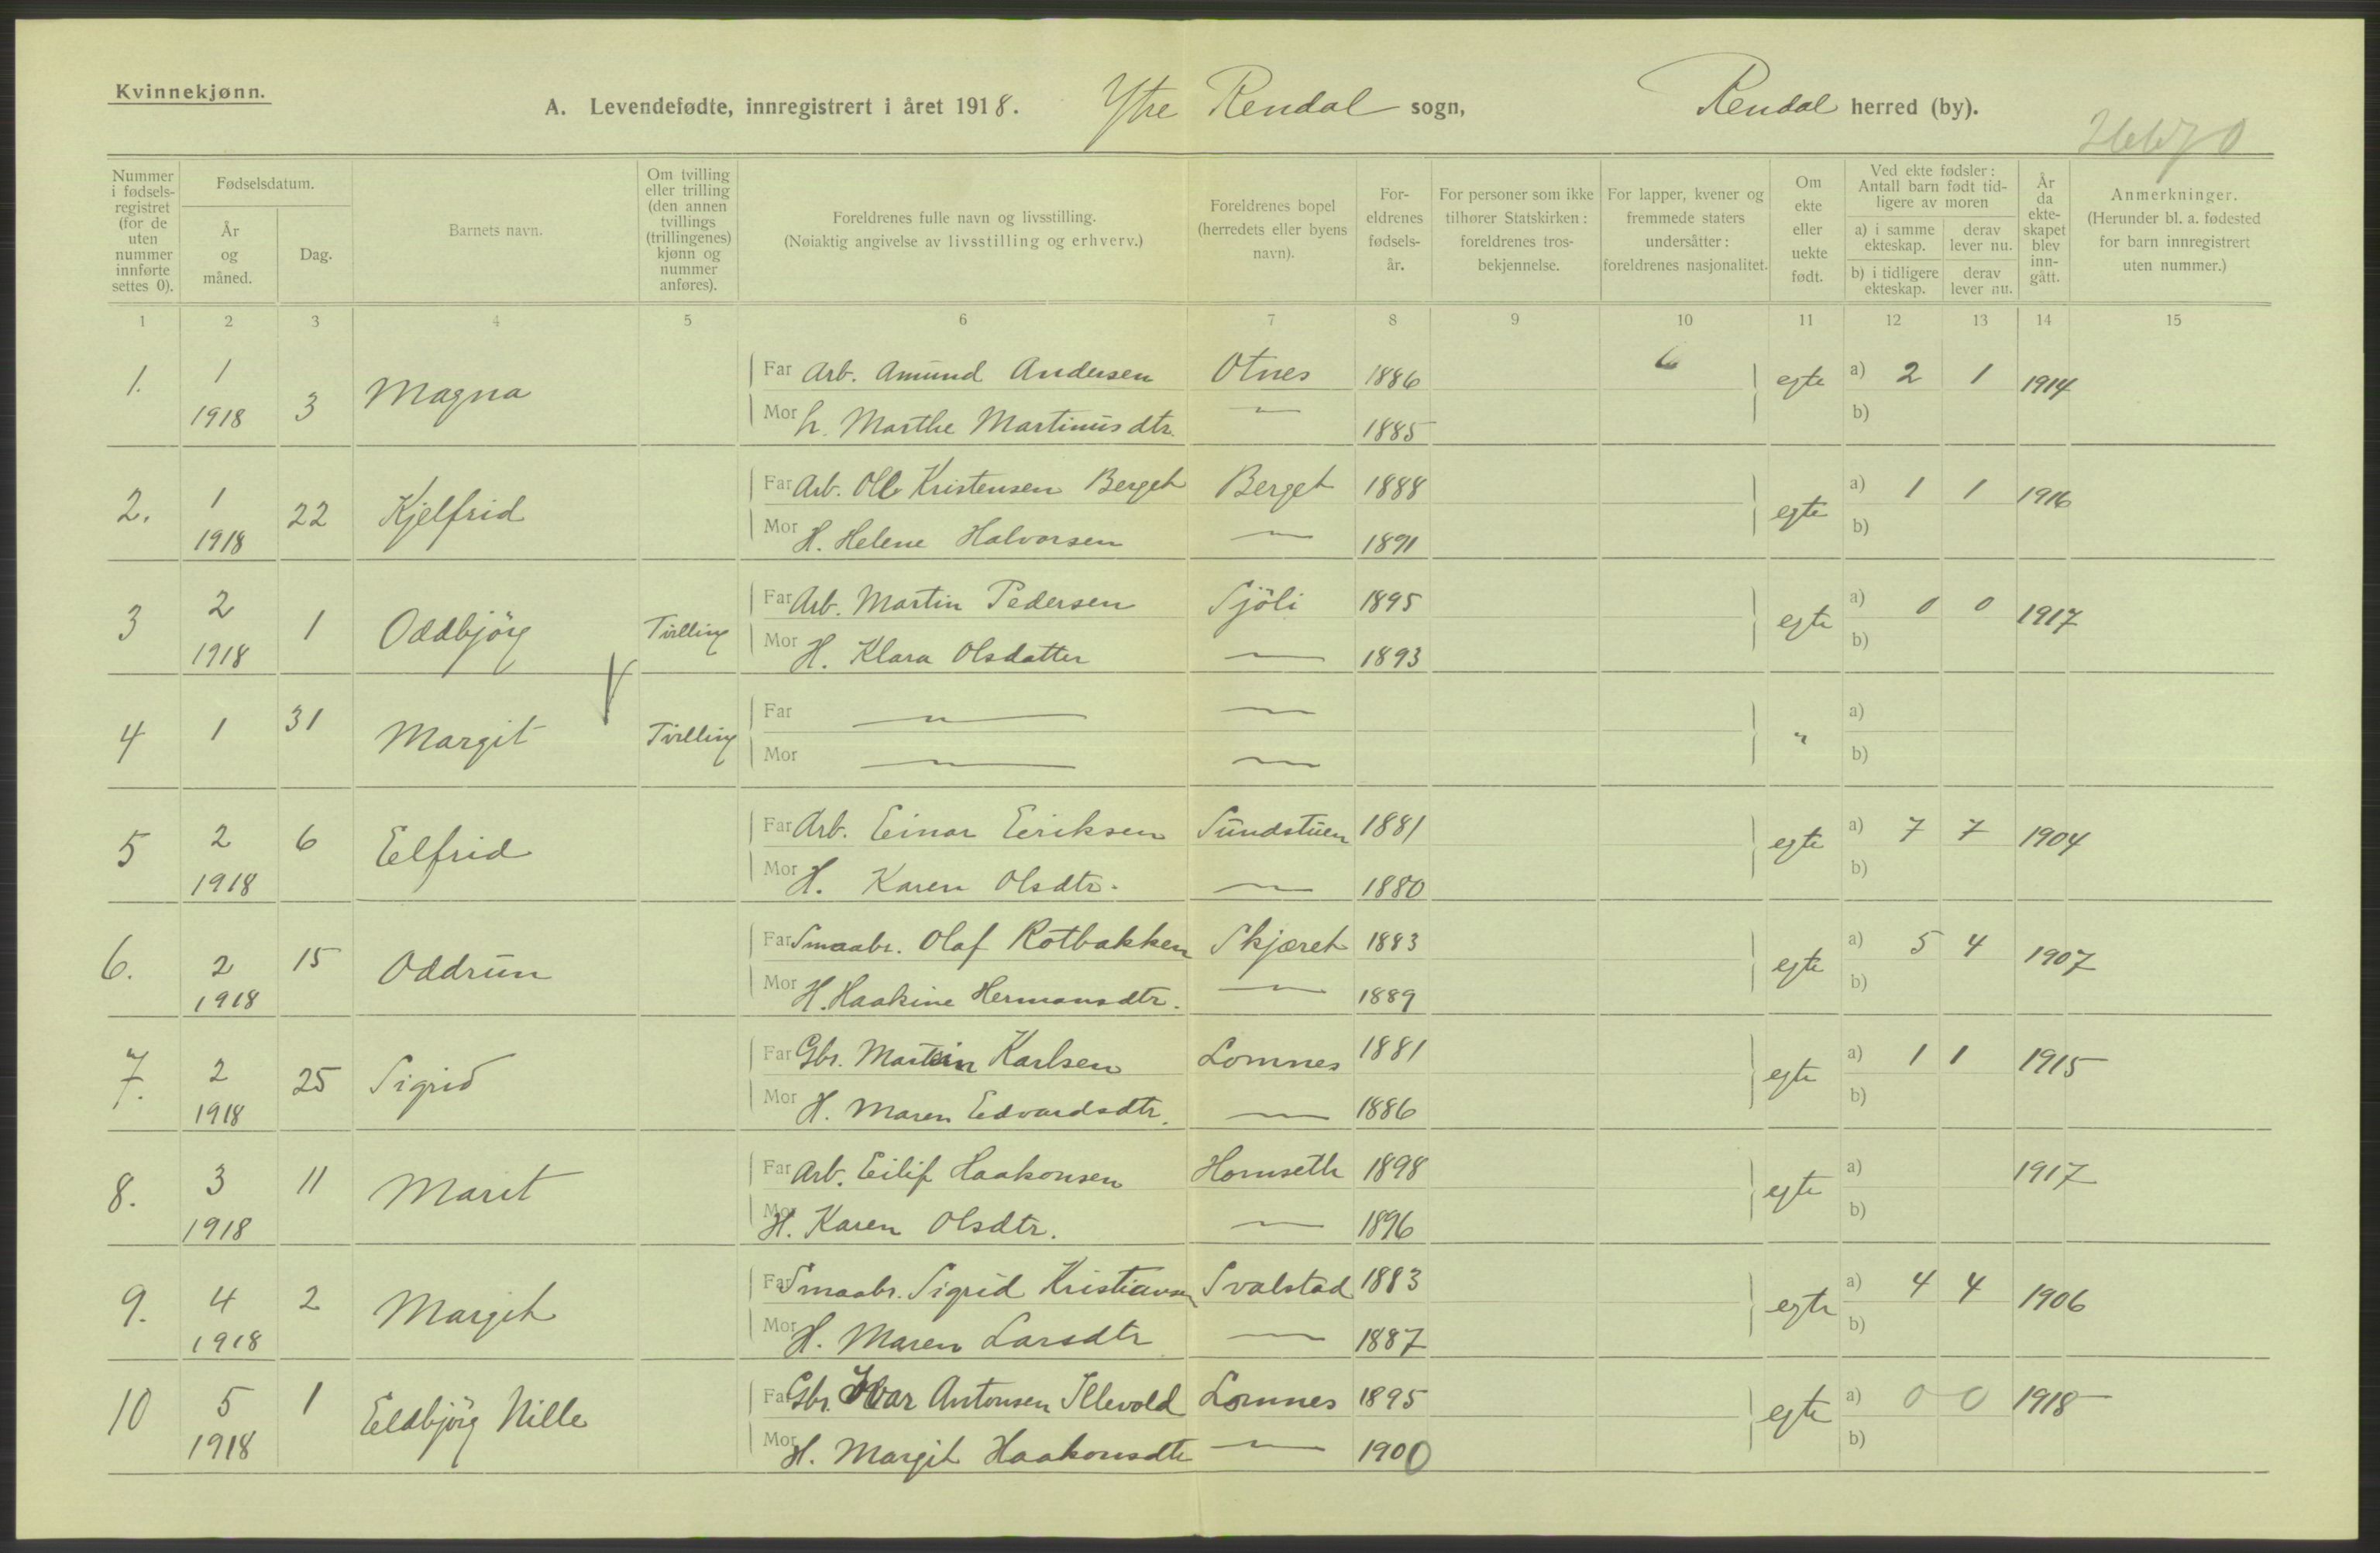 Kvinnekjønn.
A. Levendefødte, innregistrert i året 1918. Ytre Rendal sogn, Rendal herred (by).
Nummer i fødselsregistret (for de uten nummer innførte settes 0).
Fødselsdatum.
År og måned.
Dag.
Barnets navn.
Om tvilling eller trilling (den annen tvillings (trillingenes) kjønn og nummer anføres).
Foreldrenes fulle navn og livsstilling.
(Nøiaktig angivelse av livsstilling og erhverv.)
Foreldrenes bopel (herredets eller byens navn).
Foreldrenes fødselsår.
For personer som ikke tilhører Statskirken: foreldrenes trosbekjennelse.
For lapper, kvener og fremmede staters undersåtter: foreldrenes nasjonalitet.
Om ekte eller uekte født.
Ved ekte fødsler: Antall barn født tidligere av moren
a) i samme ekteskap. derav lever nu.
b) i tidligere ekteskap. derav lever nu.
År da ekteskapet blev inngått.
Anmerkninger.
(Herunder bl. a. fødested for barn innregistrert uten nummer.)
1 2 3 4 5 6 7 8 9 10 11 12 13 14 15
1. 1 1918 3 Magna Far Arb. Amund Andersen Otnes 1886 egte a) 2 1 1914
Mor h. Marthe Martinusdtr. — 1885 b)
2. 1 1918 22 Kjelfrid Far Arb. Ole Kristensen Berget Berget 1888 egte a) 1 1 1916
Mor H. Helene Halvorsen — 1891 b)
3 2 1918 1 Oddbjörg Tvilling Far Arb. Martin Pedersen Sjöli 1895 egte a) 0 0 1917
Mor H. Klara Olsdatter — 1893 b)
4 1 31 Margit Tvilling Far — — " a)
Mor — — b)
5 2 1918 6 Elfrid Far Arb. Einar Eriksen Sundstuen 1881 egte a) 7 7 1904
Mor H. Karen Olsdtr. — 1880 b)
6. 2 1918 15 Oddrun Far Smaabr. Olaf Rotbakken Skjæret 1883 egte a) 5 4 1907
Mor H. Haakine Hermansdtr. — 1889 b)
7. 2 1918 25 Sigrid Far Gbr. Martin Karlsen Lomnes 1881 egte a) 1 1 1915
Mor H. Maren Edvardsdtr. — 1886 b)
8. 3 1918 11 Marit Far Arb. Eilif Haakonsen Hornseth 1898 egte a) 1917
Mor H. Karen Olsdtr. — 1896 b)
9. 4 1918 2 Margit Far Smaabr. Sigrid Kristiansen Svalstad 1883 egte a) 4 4 1906
Mor H. Maren Larsdtr — 1887 b)
10 5 1918 1 Eldbjörg Nille Far Gbr. Ivar Antonsen Illevold Lomnes 1895 egte a) 0 0 1918
Mor H. Margit Haakonsdtr — 1900 b)